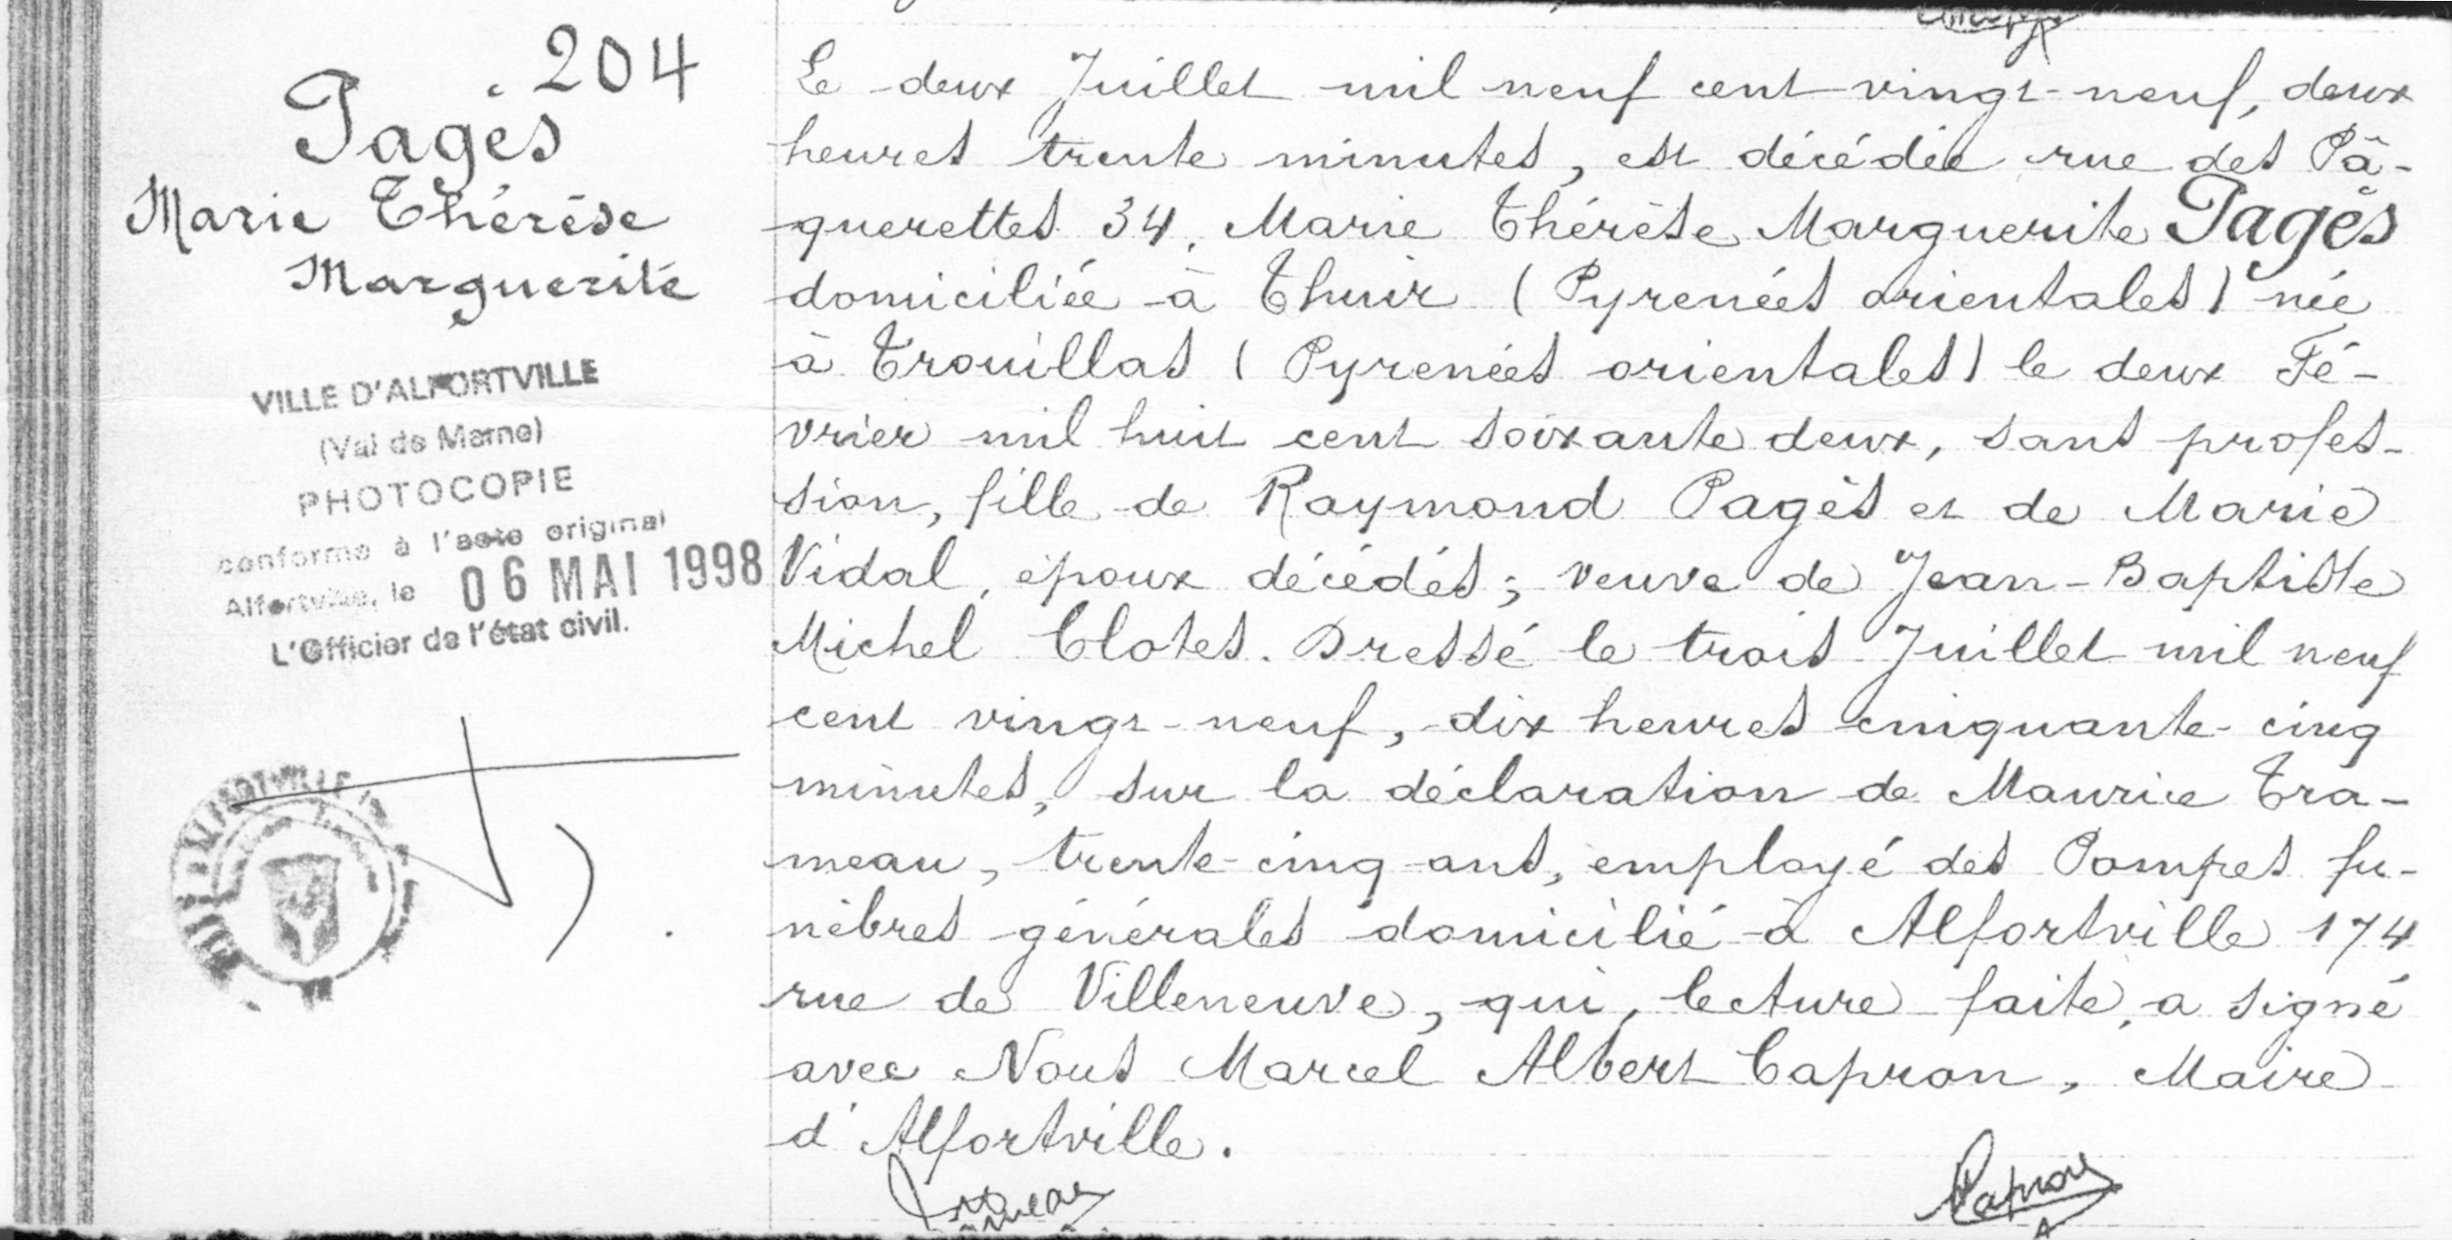 204
Pagès
Marie Thérèse
Marguerite
VILLE D'ALFORTVILLE
(Val de Marne)
PHOTOCOPIE
conforme à l'acte original
Alfortville, le 06 MAI 1998
L'Officier de l'état civil.
Le deux Juillet mil neuf cent vingt-neuf, deux
heures trente minutes, est décédée rue des Pâ-
querettes 34, Marie Thérèse Marguerite Pagès
domiciliée à Thuir (Pyrenées orientales) née
à Trouillas (Pyrenées orientales) le deux Fé-
vrier mil huit cent soixante deux, sans profes-
sion, fille de Raymond Pagès et de Marie
Vidal, époux décédés; veuve de Jean-Baptiste
Michel Clotes. Dressé le trois Juillet mil neuf
cent vingt-neuf, dix heures cinquante-cinq
minutes, sur la déclaration de Maurice Tra-
meau, trente-cinq ans, employé des Pompes fu-
nèbres générales domicilié à Alfortville 174
rue de Villeneuve, qui, lecture faite, a signé
avec Nous Marcel Albert Capron, Maire
d'Alfortville.
Capron